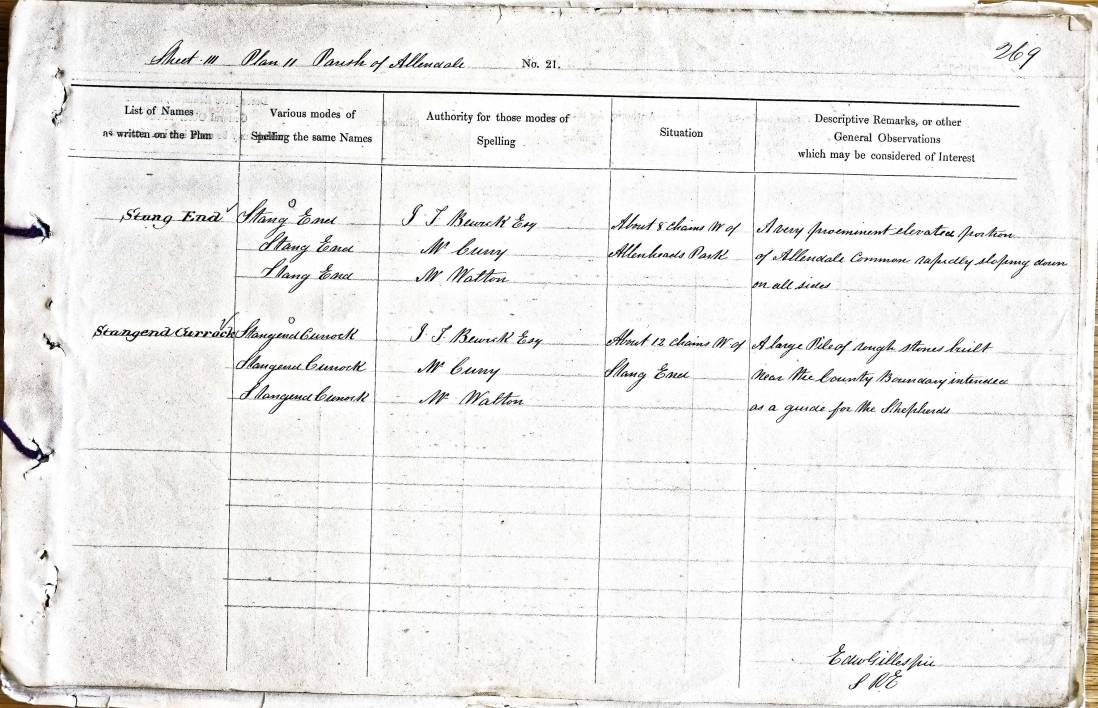 269
Sheet 111 Plan 11 Parish of Allendale No. 21.
List of Names
as written on the Plan
Various modes of
Spelling the same Names
Authority for those modes of
Spelling
Situation
Descriptive Remarks, or other
General Observations
which may be considered of Interest
Stang End
Stang End
Stang End
Stang End
J T Bewick Esq
Mr Curry
Mr Walton
About 8 chains W of
Allenheads Park
A very proeminent elevated portion
of Allendale Common rapidly sloping down
on all sides
Stangend Currock
Stangend Currock
Stangend Currock
Stangend Currock
J T Bewick Esq
Mr Curry
Mr Walton
About 12 chains W of
Stang End
A large Pile of rough stones built
near the County Boundary intended
as a guide for the Shepherds
Edw Gillespie
S R.E